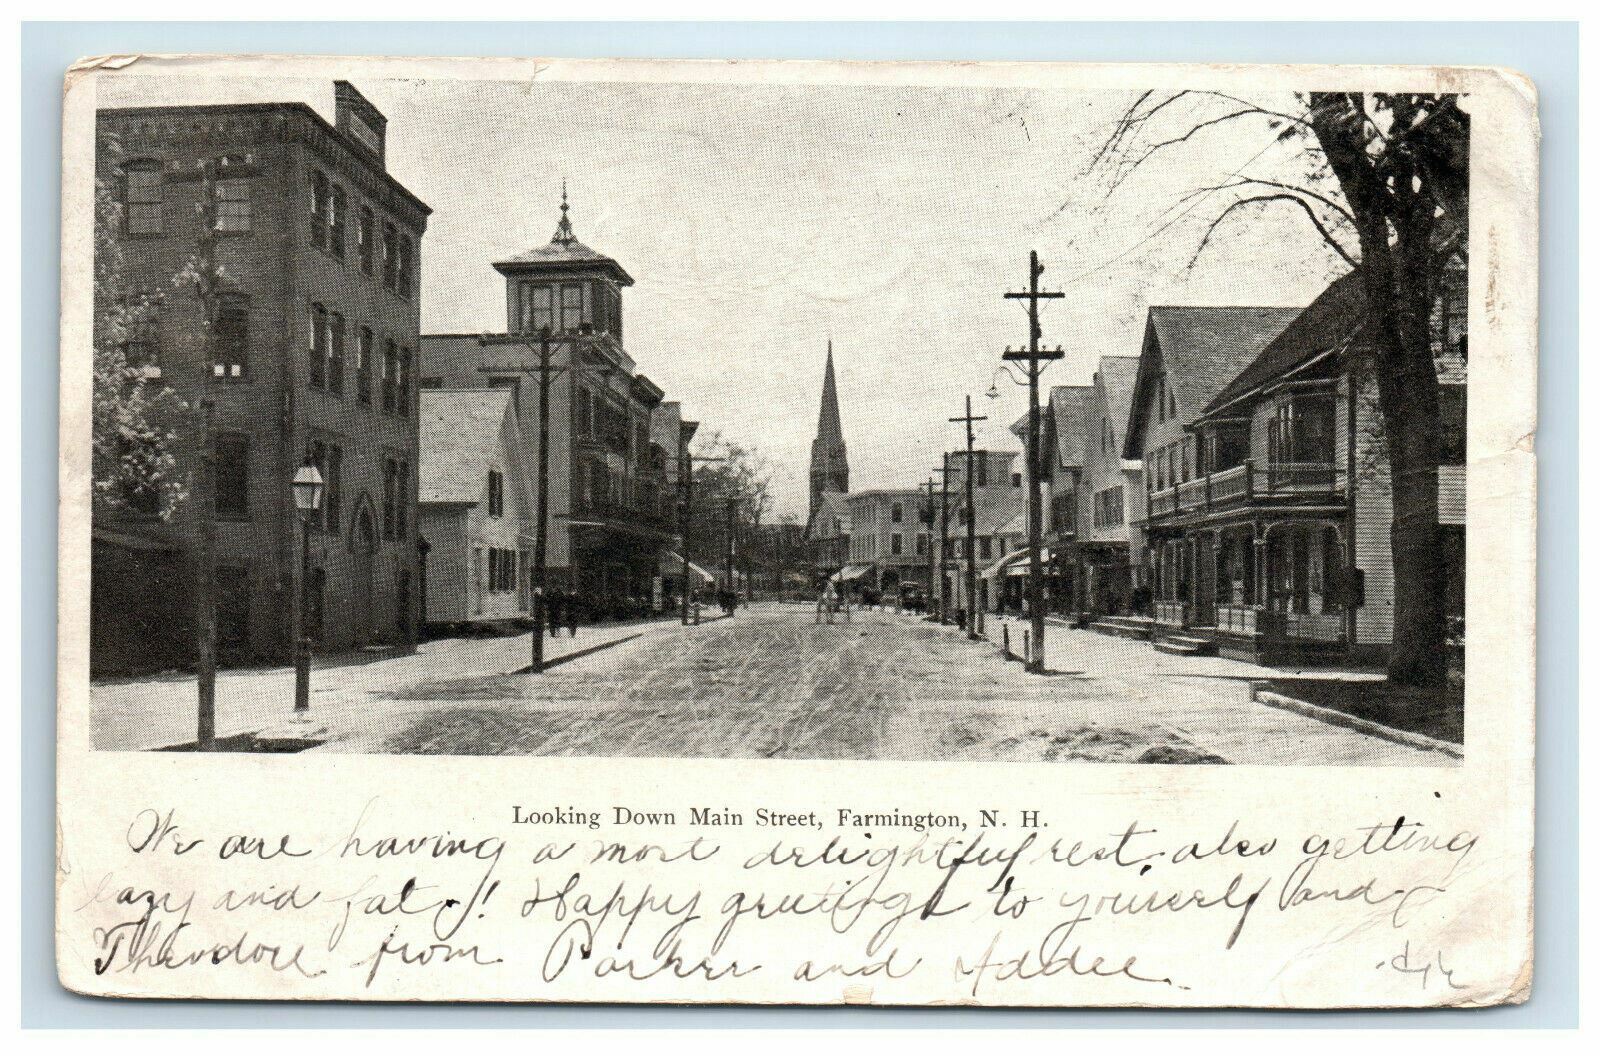 Looking Down Main Street, Farmington, N. H.
We are having a most delightful rest, also getting
lazy and fat! Happy greetings to yourself and
Theodore from Parker and Addee.